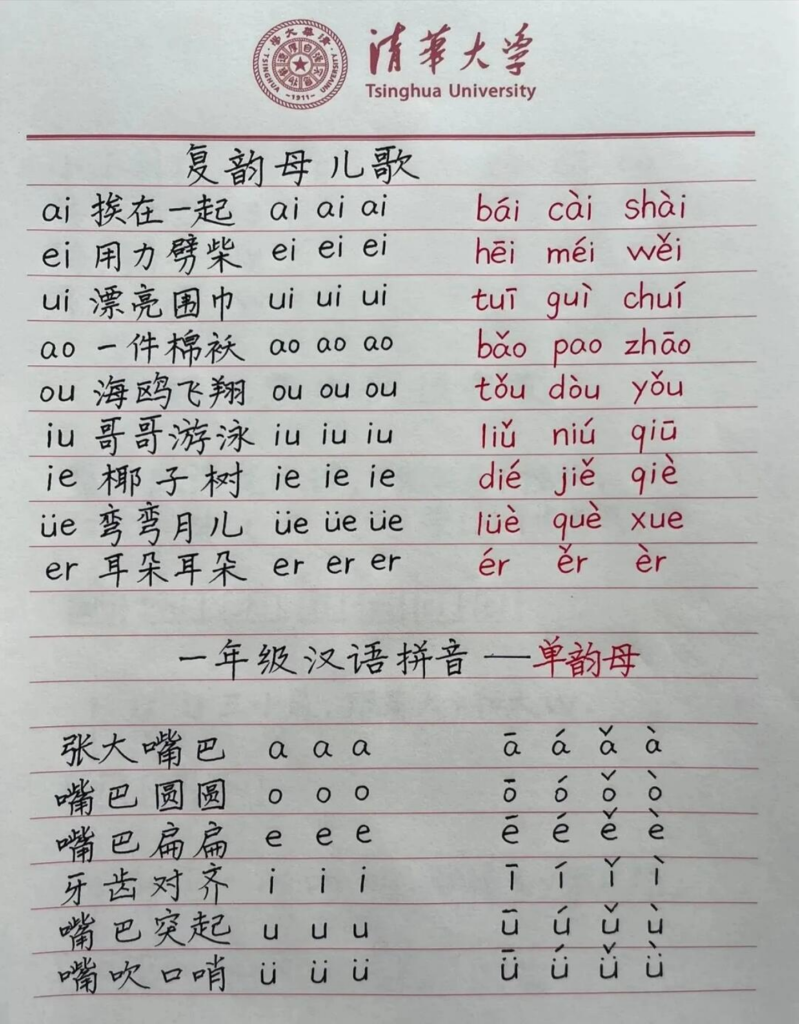 清华大学
Tsinghua University
复韵母儿歌
ai 挨在一起 ai ai ai bái cài shài
ei 用力劈柴 ei ei ei hēi méi wěi
ui 漂亮围巾 ui ui ui tuī guì chuí
ao 一件棉袄 ao ao ao bǎo pao zhāo
ou 海鸥飞翔 ou ou ou tǒu dòu yǒu
iu 哥哥游泳 iu iu iu liǔ niú qiū
ie 椰子树 ie ie ie dié jiě qiè
üe 弯弯月儿 üe üe üe lüè què xue
er 耳朵耳朵 er er er ér ěr èr
一年级汉语拼音——单韵母
张大嘴巴 a a a ā á ǎ à
嘴巴圆圆 o o o ō ó ǒ ò
嘴巴扁扁 e e e ē é ě è
牙齿对齐 i i i ī í ǐ ì
嘴巴突起 u u u ū ú ǔ ù
嘴吹口哨 ü ü ü ǖ ǘ ǚ ǜ